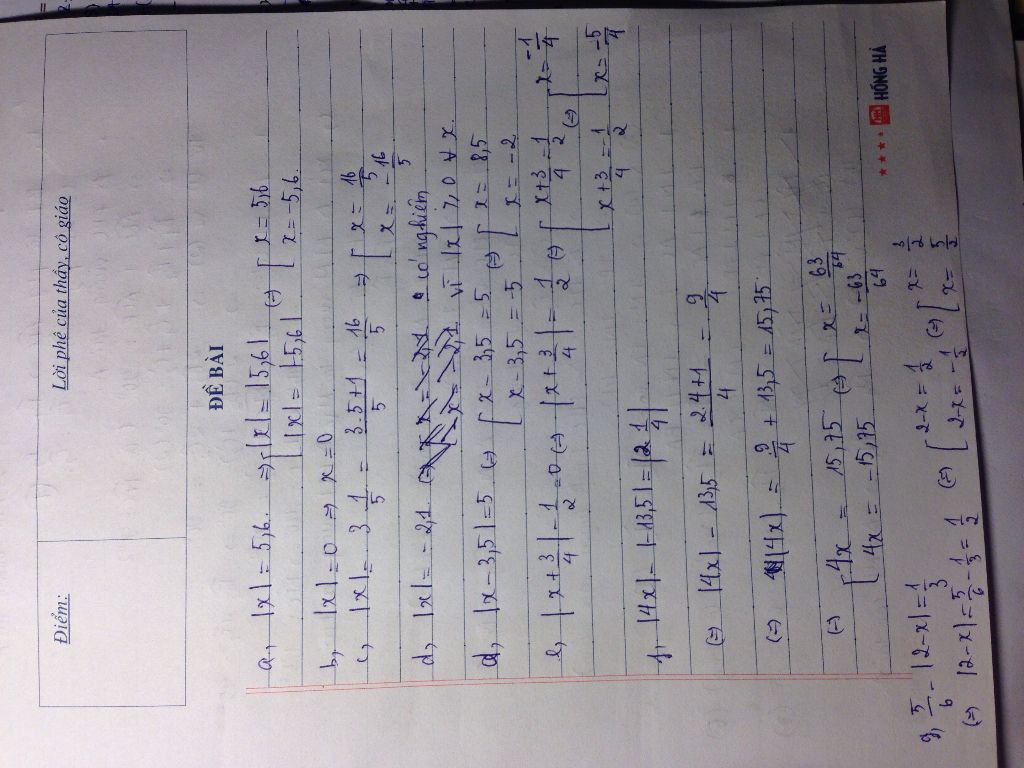 Điểm:
Lời phê của thầy, cô giáo
ĐỀ BÀI
a, |x| = 5,6. => [ |x| = |5,6| (=) [ x = 5,6
|x| = |-5,6| x = -5,6.
b, |x| = 0 => x = 0
c, |x| = 3 1/5 = 3.5+1/5 = 16/5 => [ x = 16/5
x = -16/5
d, |x| = -2,1 có nghiệm
vì |x| ≥ 0 ∀ x.
d, |x - 3,5| = 5 (=) [ x - 3,5 = 5 (=) [ x = 8,5
x - 3,5 = -5 x = -2
e, |x + 3/4| - 1/2 = 0 (=) |x + 3/4| = 1/2 (=) [ x + 3/4 = 1/2 (=) [ x = -1/4
x + 3/4 = -1/2 x = -5/4
f, |4x| = |-13,5| = |2 1/4|
(=) |4x| - 13,5 = 2.4+1/4 = 9/4
(=) |4x| = 9/4 + 13,5 = 15,75.
(=) [ 4x = 15,75 (=) [ x = 63/64
4x = -15,75 x = -63/64
HỒNG HÀ
g, 5/6 - |2-x| = 1/3
(=) |2-x| = 5/6 - 1/3 = 1/2 (=) [ 2-x = 1/2 (=) [ x = 3/2
2-x = -1/2 x = 5/2